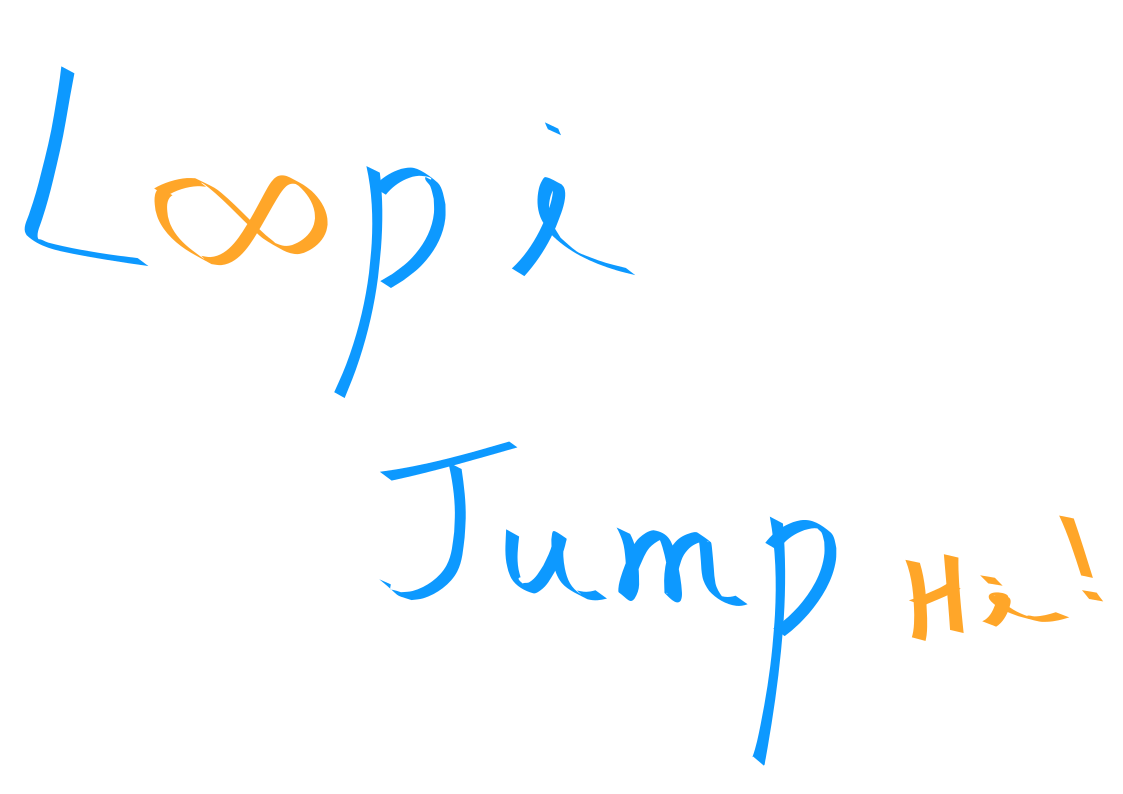 L∞pi
Jump Hi!